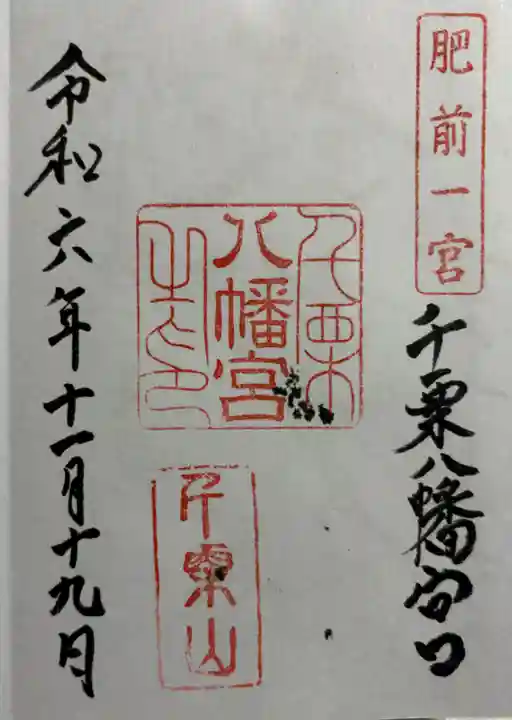 肥前一宮
千栗八幡宮
千栗
八幡宮
之印
千栗山
令和六年十一月十九日